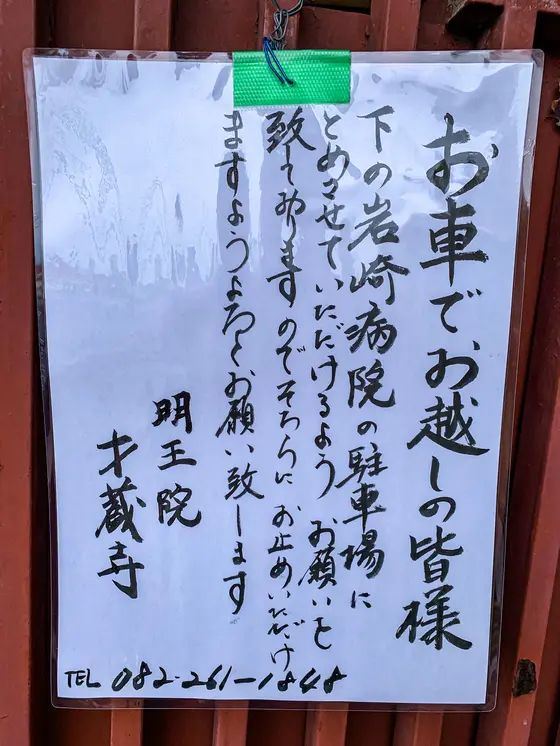 お車でお越しの皆様
下の岩崎病院の駐車場に
とめさせていただけるよう お願いを
致しておりますのでそちらに お止めいただけ
ますようよろしくお願い致します
明王院
才蔵寺
TEL 082-261-1848